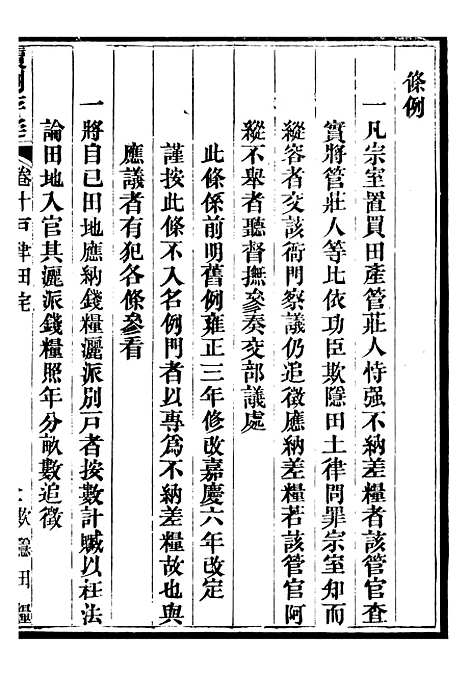 條例
一凡宗室置買田產管莊人恃强不納差糧者該管官查
實將管莊人等比依功臣欺隱田土律問罪宗室知而
縱容者交該衙門察議仍追徵應納差糧若該管官阿
縱不舉者聽督撫參奏交部議處
此條係前明舊例雍正三年修改嘉慶六年改定
謹按此條不入名例門者以專爲不納差糧故也與
應議者有犯各條參看
一將自己田地應納錢糧灑派別戸者按數計贓以枉法
論田地入官其灑派錢糧照年分畝數追徵
卷十戸律田宅
欺隱田糧